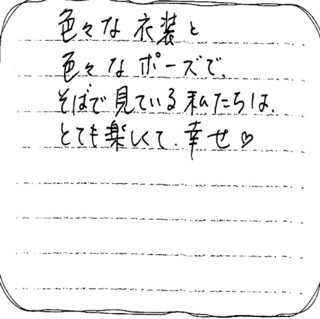 色々な衣装と
色々なポーズで、
そばで見ている私たちは、
とても楽しくて、幸せ♡